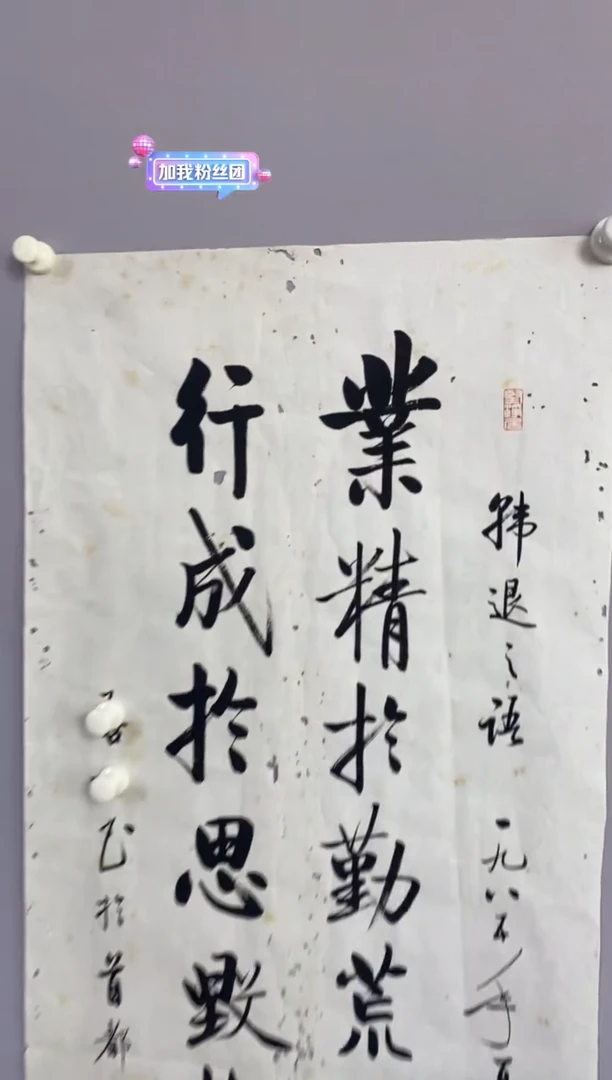 加我粉丝团
韩退之语 一九八五年
業精於勤荒
行成於思毁
於首都